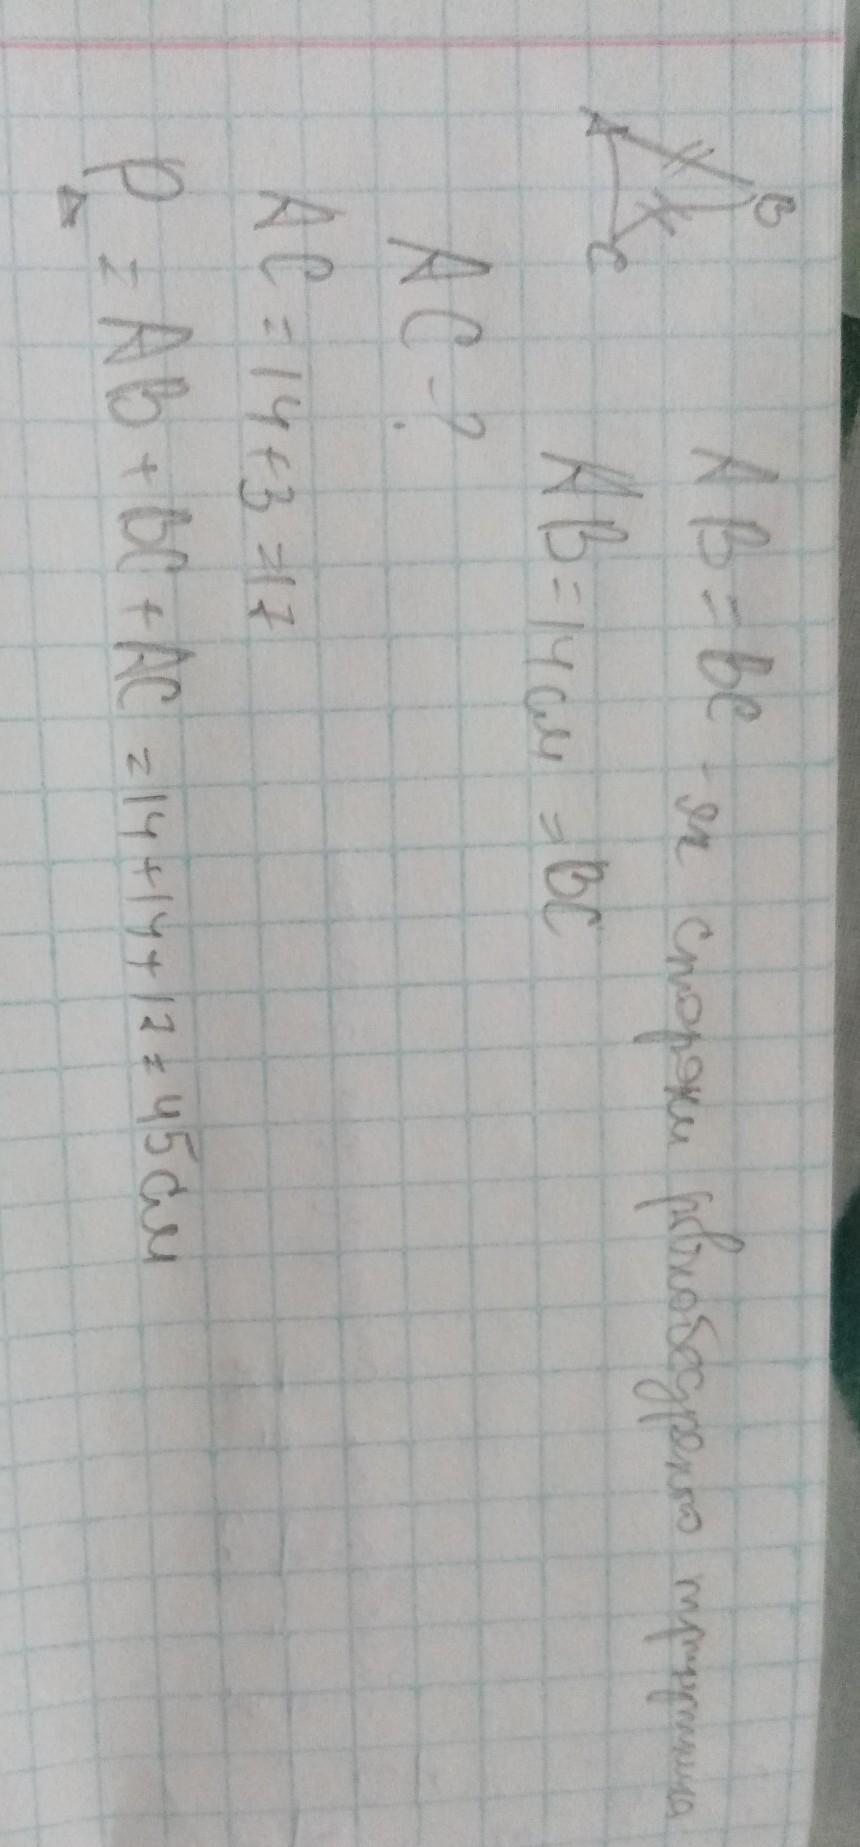 B
A C
AB = BC - як сторони рівнобедреного трикутника
AB = 14 см = BC
AC - ?
AC = 14 + 3 = 17
P△ = AB + BC + AC = 14 + 14 + 17 = 45 см